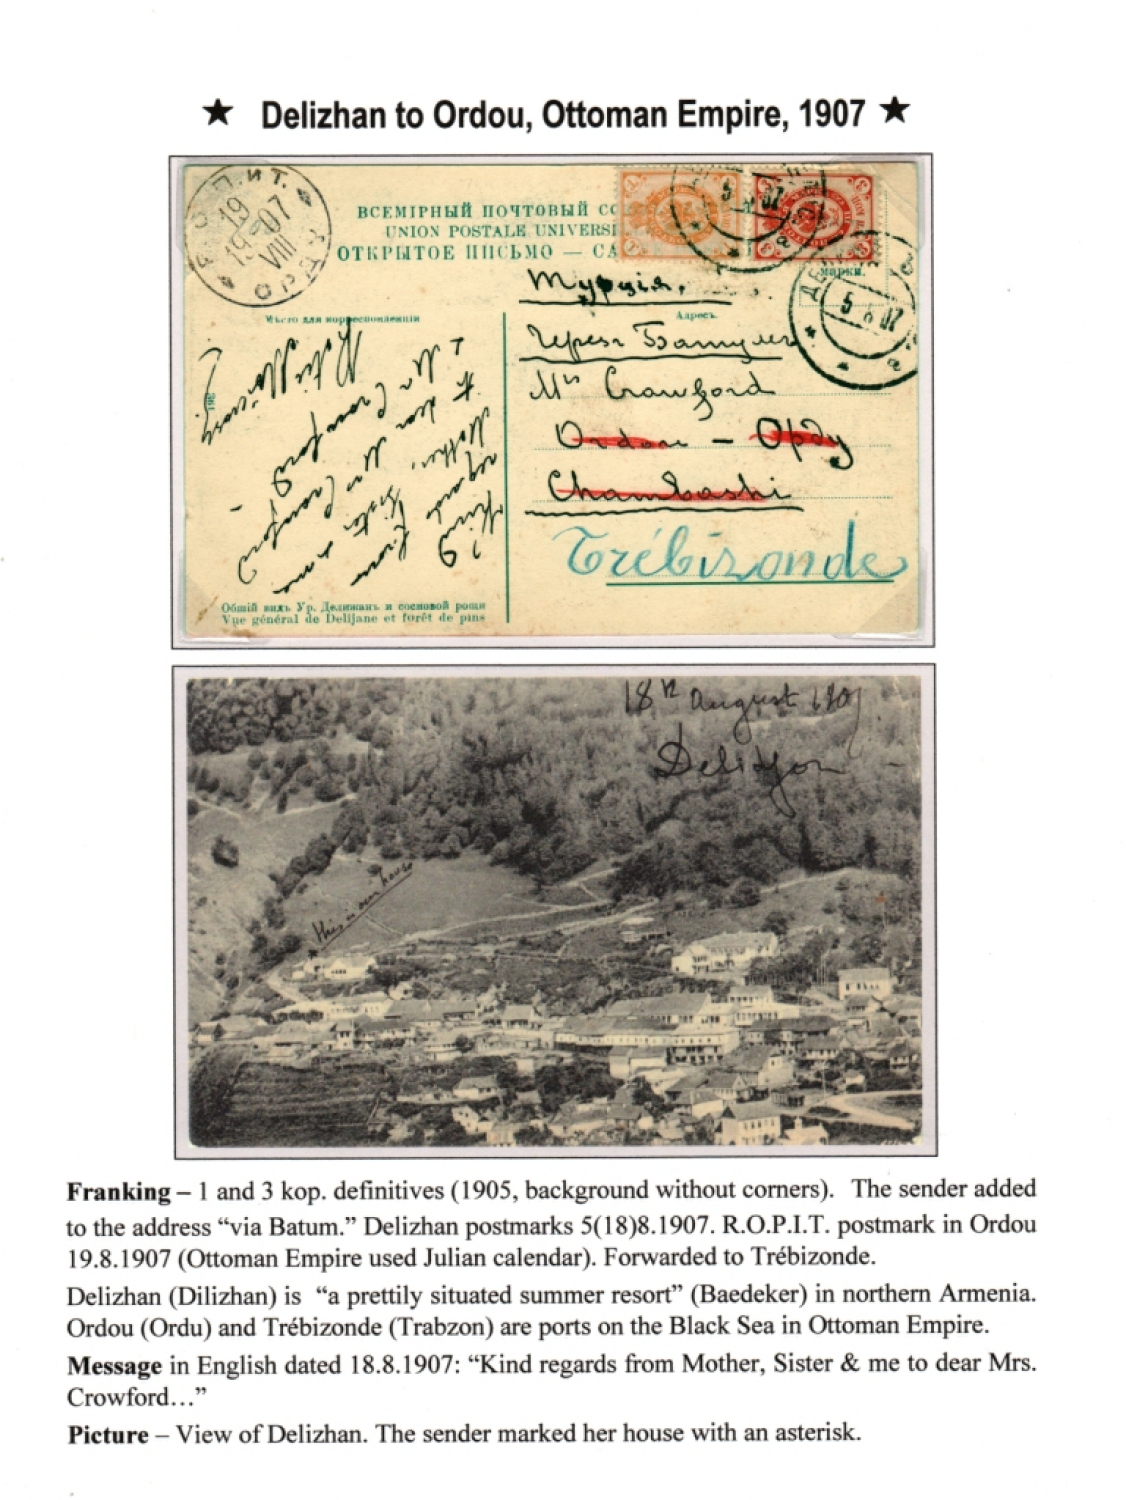 ★ Delizhan to Ordou, Ottoman Empire, 1907 ★
Р.О.П.И.Т.
19
19-07
VIII
ОРДУ
ВСЕМІРНЫЙ ПОЧТОВЫЙ
UNION POSTALE UNIVERS
ОТКРЫТОЕ ПИСЬМО — CA
марки.
5 8 07
5 8 07
а
а
Мѣсто для корреспонденціи
Адресъ.
Турція.
Через Батумъ
Mrs Crawford
Ordou - Орду
Chambashi
Trébizonde
Kind
regards from
Mother, Sister & me
to dear Mrs Crawford
& Mr Crawford
Общій видъ Ур. Делижанъ и сосновой рощи
Vue général de Delijane et forêt de pins
18th august 1907
Delidjan
this is our house
Franking – 1 and 3 kop. definitives (1905, background without corners). The sender added
to the address “via Batum.” Delizhan postmarks 5(18)8.1907. R.O.P.I.T. postmark in Ordou
19.8.1907 (Ottoman Empire used Julian calendar). Forwarded to Trébizonde.
Delizhan (Dilizhan) is “a prettily situated summer resort” (Baedeker) in northern Armenia.
Ordou (Ordu) and Trébizonde (Trabzon) are ports on the Black Sea in Ottoman Empire.
Message in English dated 18.8.1907: “Kind regards from Mother, Sister & me to dear Mrs.
Crowford…”
Picture – View of Delizhan. The sender marked her house with an asterisk.